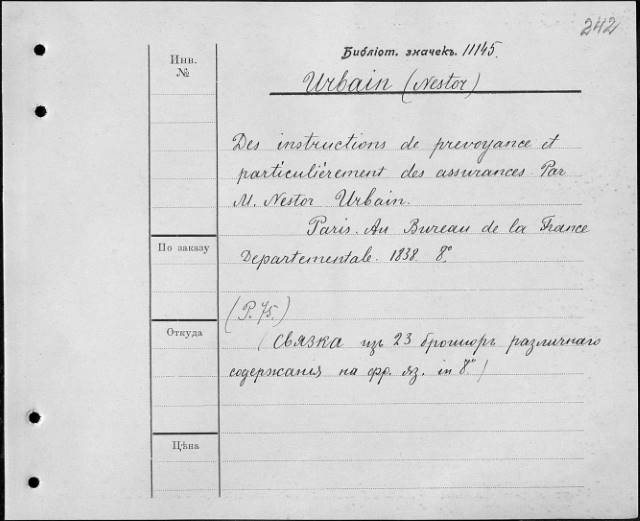 242
Библіот. значекъ. 11145.
Инв.
№
Urbain (Nestor)
Des instructions de prevoyance et
particuliérement des assurances Par
M. Nestor Urbain.
Paris. Au Bureau de la France
По заказу
Departementale. 1838. 8º.
(P. 75.)
Откуда
(Связка изъ 23 брошюръ различнаго
содержанія на фр. яз. in 8º.)
Цѣна